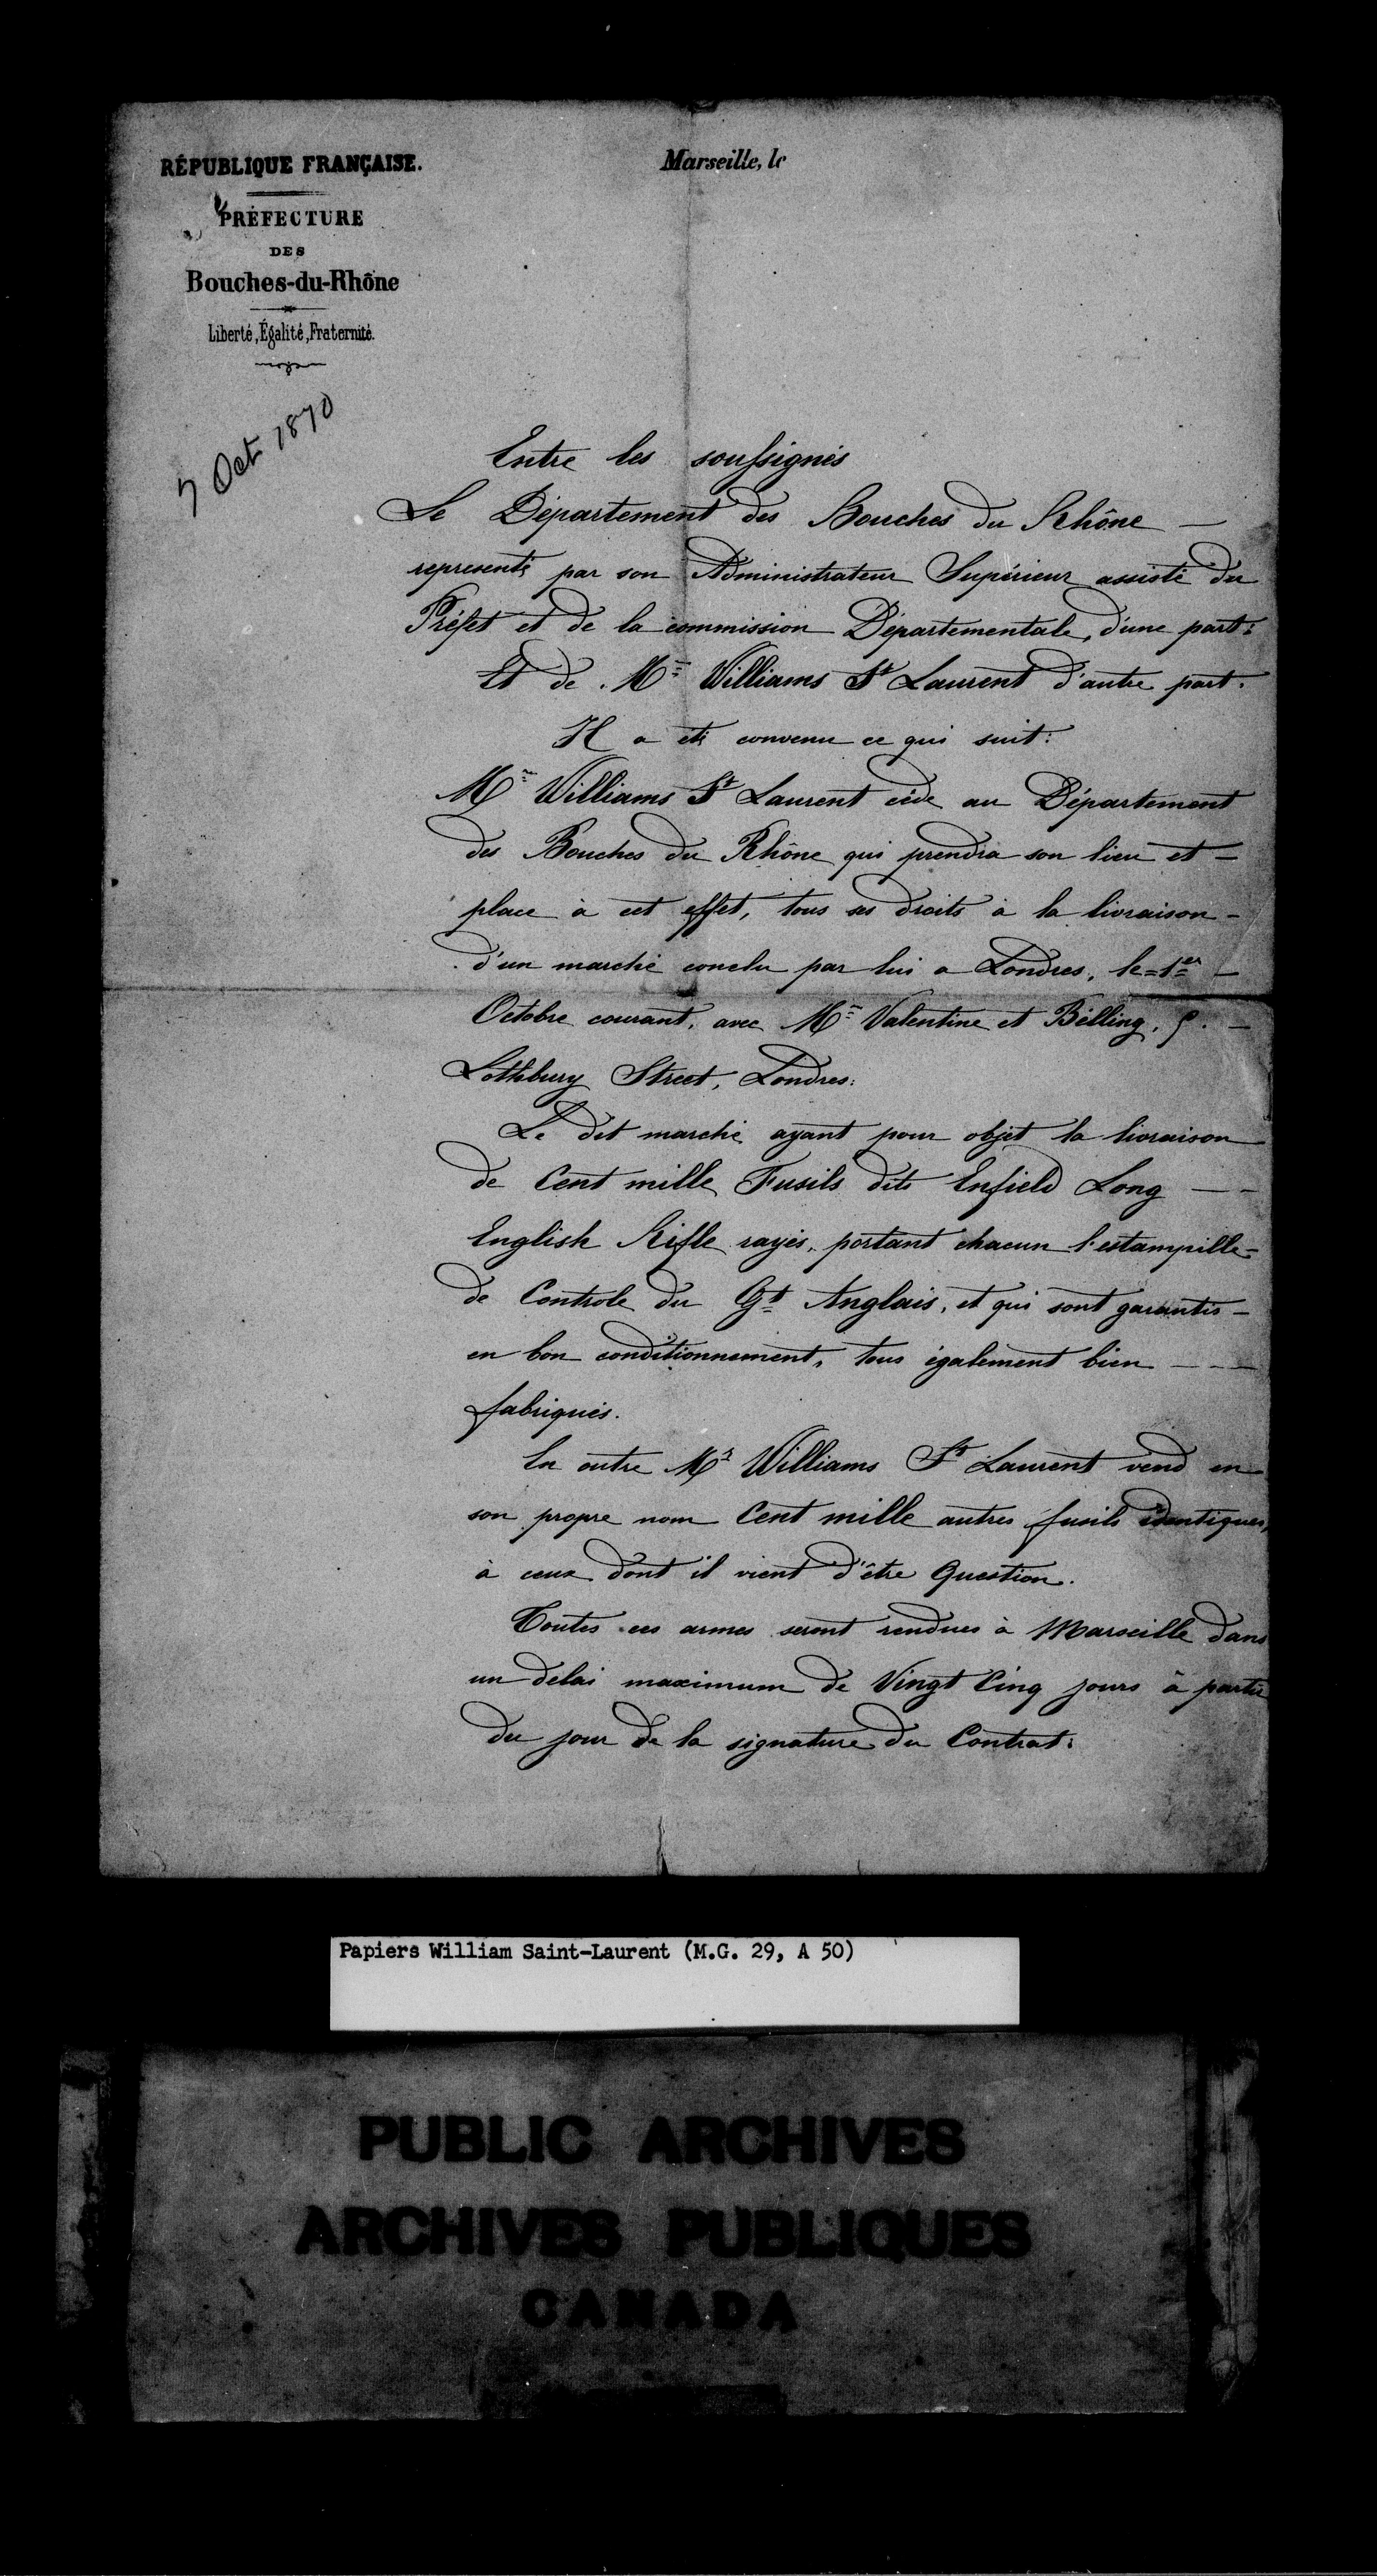 RÉPUBLIQUE FRANÇAISE.
PRÉFECTURE
DES
Bouches-du-Rhône
Liberté, Égalité, Fraternité.
Marseille, le
7 Oct 1870
Entre les soussignés
Le Département des Bouches du Rhône —
representé par son Administrateur Supérieur assisté du
Préfet et de la commission Départementale, d'une part:
Et de Mr Williams St Laurent d'autre part.
Il a été convenu ce qui suit:
Mr Williams St Laurent cède au Département
des Bouches du Rhône qui prendra son lieu et —
place à cet effet, tous ses droits à la livraison —
d'un marché conclu par lui a Londres, le 1er —
Octobre courant, avec Mr Valentine et Bélling,
Lothbury Street, Londres:
Le dit marché ayant pour objet la livraison
de Cent mille Fusils dits Enfield Long — —
English Rifle rayés, portant chacun l'estampille —
de Controle du Gt Anglais, et qui sont garantis —
en bon conditionnement, tous également bien — — —
fabriqués.
En outre Mr Williams St Laurent vend en
son propre nom Cent mille autres fusils identiques,
à ceux dont il vient d'être Question.
Toutes ces armes seront rendues à Marseille dans
un delai maximum de Vingt Cinq jours à partir
du jour de la signature du Contrat:
Papiers William Saint-Laurent (M.G. 29, A 50)
PUBLIC ARCHIVES
ARCHIVES PUBLIQUES
CANADA